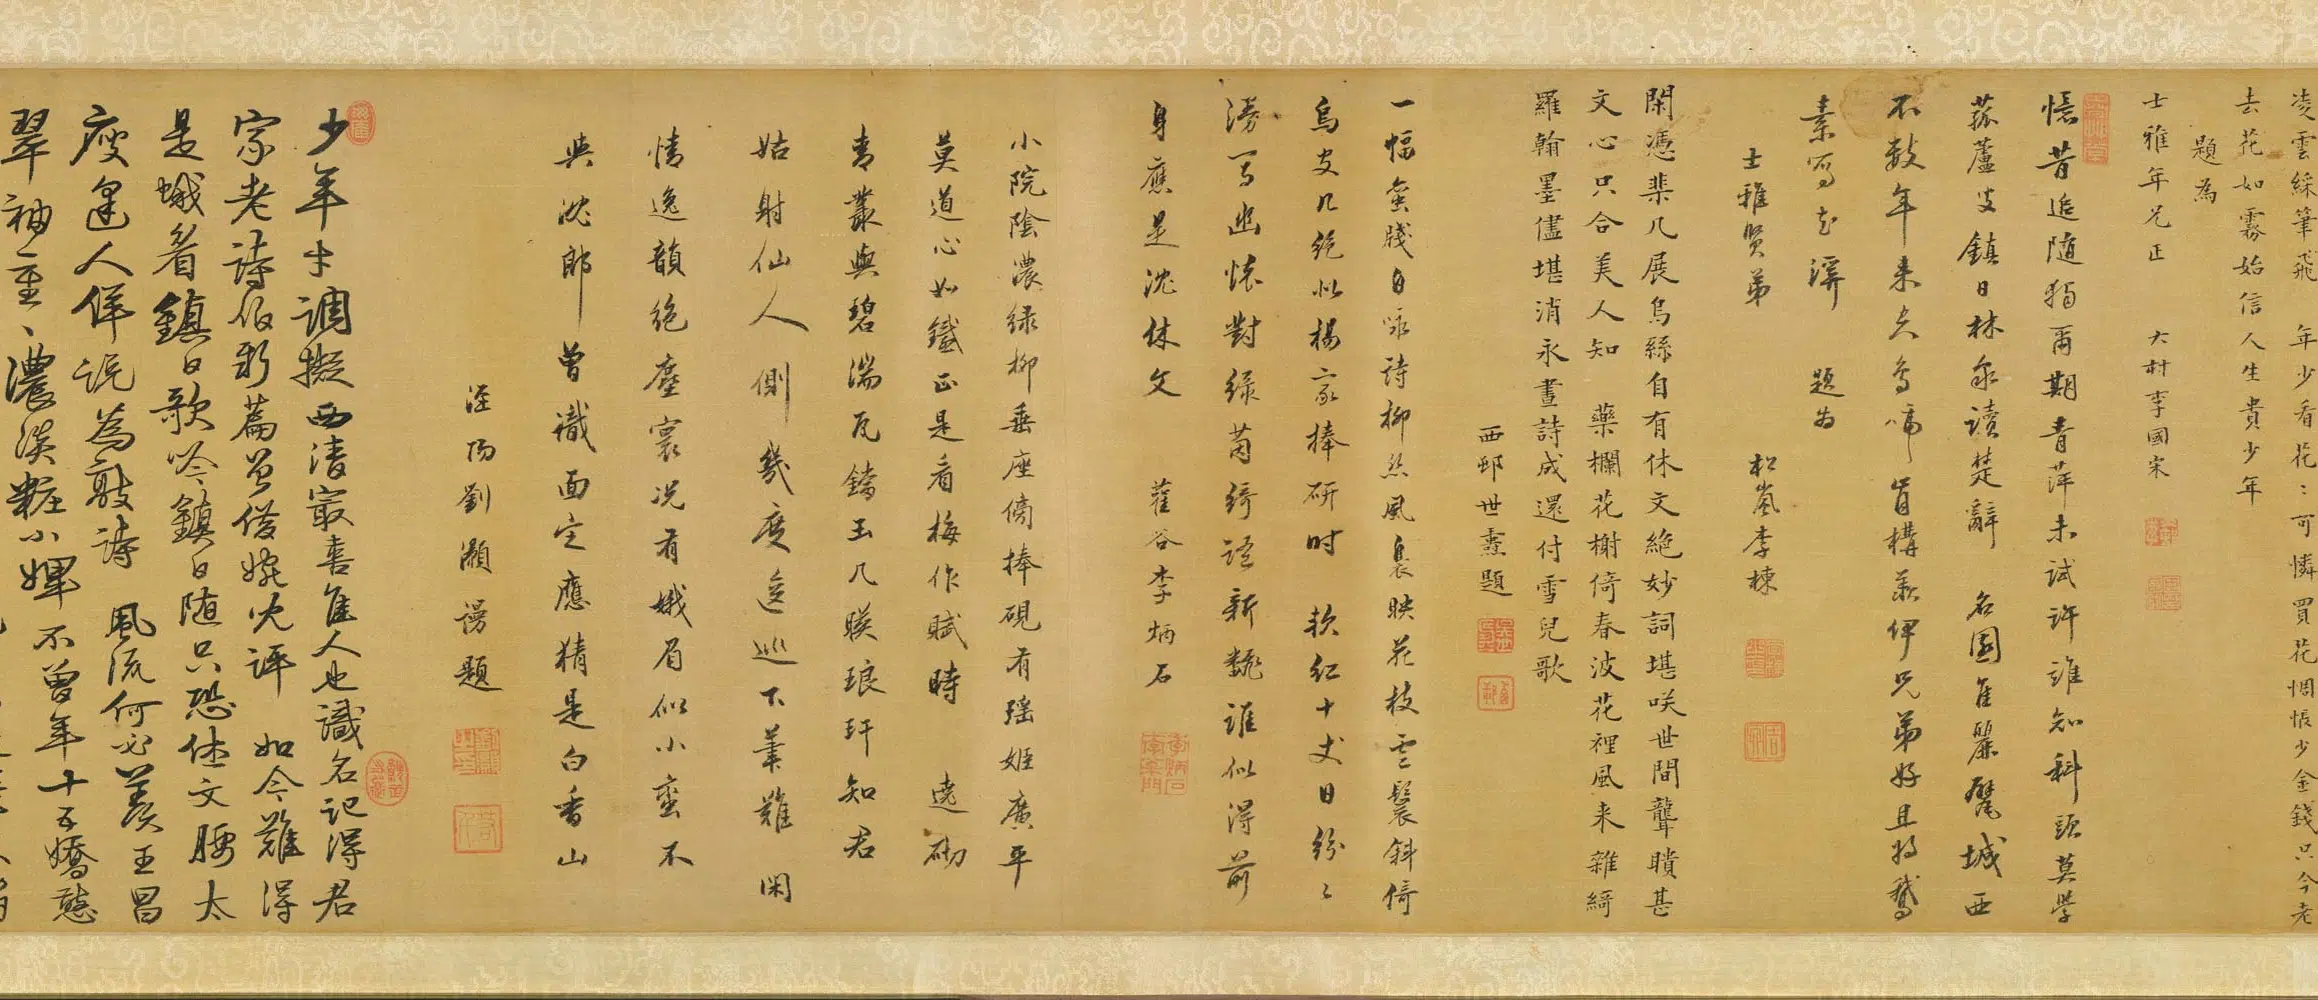 凌雲綵筆飛 年少看花〻可憐買花惆悵少金錢只今老
去花如霧始信人生貴少年
題為
士雅年兄正 大村李國宋
憶昔追隨獨爾期青萍未試許誰知科頭莫學
菰蘆叟鎮日林泉讀楚辭 名園隹麗甓城西
不數年来矣鳥啼肯構羨伊兄弟好且將鵝
素寫花谿 題為
士雅賢弟 松嵐李棟
閑憑棐几展烏絲自有休文絶妙詞堪咲世間聾瞶甚
文心只合美人知 藥欄花榭倚春波花裡風来雜綺
羅翰墨儘堪消永晝詩成還付雪兒歌
西邨世燾題
一幅蠻牋自咏詩柳絲風裊映花枝雲鬟斜倚
烏皮几絶似楊家捧研時 軟紅十丈日紛〻
漫寫幽懷對綠茵綺語新翻誰似得前
身應是沈休文 藿谷李炳石
小院陰濃緑柳垂座傍捧硯有瑶姬廣平
莫道心如鐵正是看梅作賦時 遶砌
青叢與碧湍瓦鐺玉几暎琅玕知君
姑射仙人側幾度逡巡下筆難 閑
情逸韻絶塵寰况有娥眉似小蠻不
與沈郎曾識面定應猜是白香山
淫陽劉灝謾題
少年才調擬西清最喜隹人也識名記得君
家老詩伯新篇曾倩婉兒評 如今難得
是城看鎮日歌吟鎮日随只恐休文腰太
瘦逢人佯説為敲詩 風流何必羨王昌
翠袖重〻濃淡粧小婢不曾年十五嬌憨